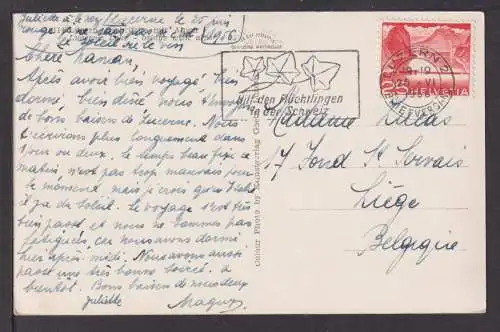 Juliette a le nez
rouge
Lucerne le 25 juin
1956
le soleil et le vin
Chère maman,
Après avoir bien voyagé, bien
dormé, bien dîné, nous t'envoy
de bons baisers de Lucerne. Nous
t'écrivons plus longuement dans 1
jour ou deux. Le temps beau fixe ce
matin, n'est pas trop mauvais pour
le moment, mais je crois que
y a pas de soleil. Le voyage s'est très
bien passé et nous ne sommes pas
fatiguées, car nous avons dormi
hier après-midi. Nous avons aussi
passé une très bonne soirée. à
bientôt. Bons baisers de nous deux
Juliette Maguy
Colour Photo by
Hilf den Flüchtlingen
in der Schweiz
LUZERN 2
BRIEFVERSAND
HELVETIA
Madame
17 Fond St Servais
Liège
Belgique